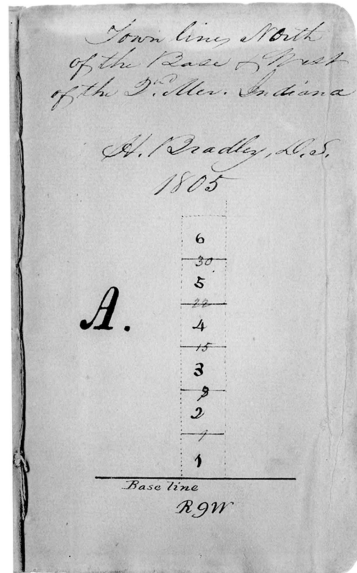 Town lines North
of the Base & West
of the 2d. Mer. Indiana
H. Bradley, D.S.
1805
6
30
5
22
4
A.
15
3
8
2
1
1
Base line
R9W